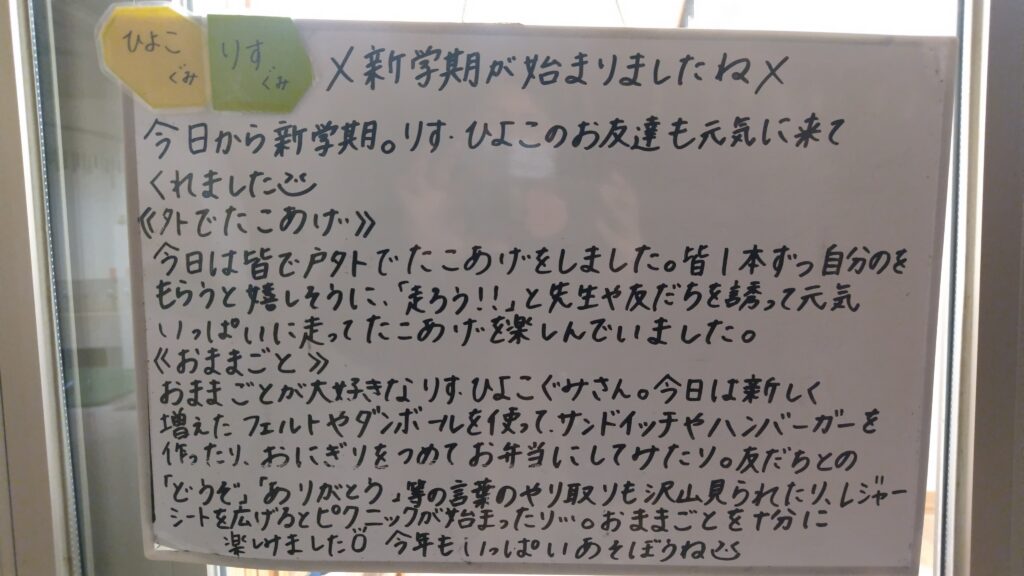 ひよこ
ぐみ
りす
ぐみ
〆新学期が始まりましたね〆
今日から新学期。りす・ひよこのお友達も元気に来て
くれました
《外でたこあげ》
今日は皆で戸外でたこあげをしました。皆1本ずつ自分のを
もらうと嬉しそうに、「走ろう!!」と先生や友だちを誘って元気
いっぱいに走ってたこあげを楽しんでいました。
《おままごと》
おままごとが大好きなりす・ひよこぐみさん。今日は新しく
増えたフェルトやダンボールを使って、サンドイッチやハンバーガーを
作ったり、おにぎりをつめてお弁当にしてみたり。友だちとの
「どうぞ」「ありがとう」等の言葉のやり取りも沢山見られたり、レジャー
シートを広げるとピクニックが始まったり…。おままごとを十分に
楽しめました 今年もいっぱいあそぼうね